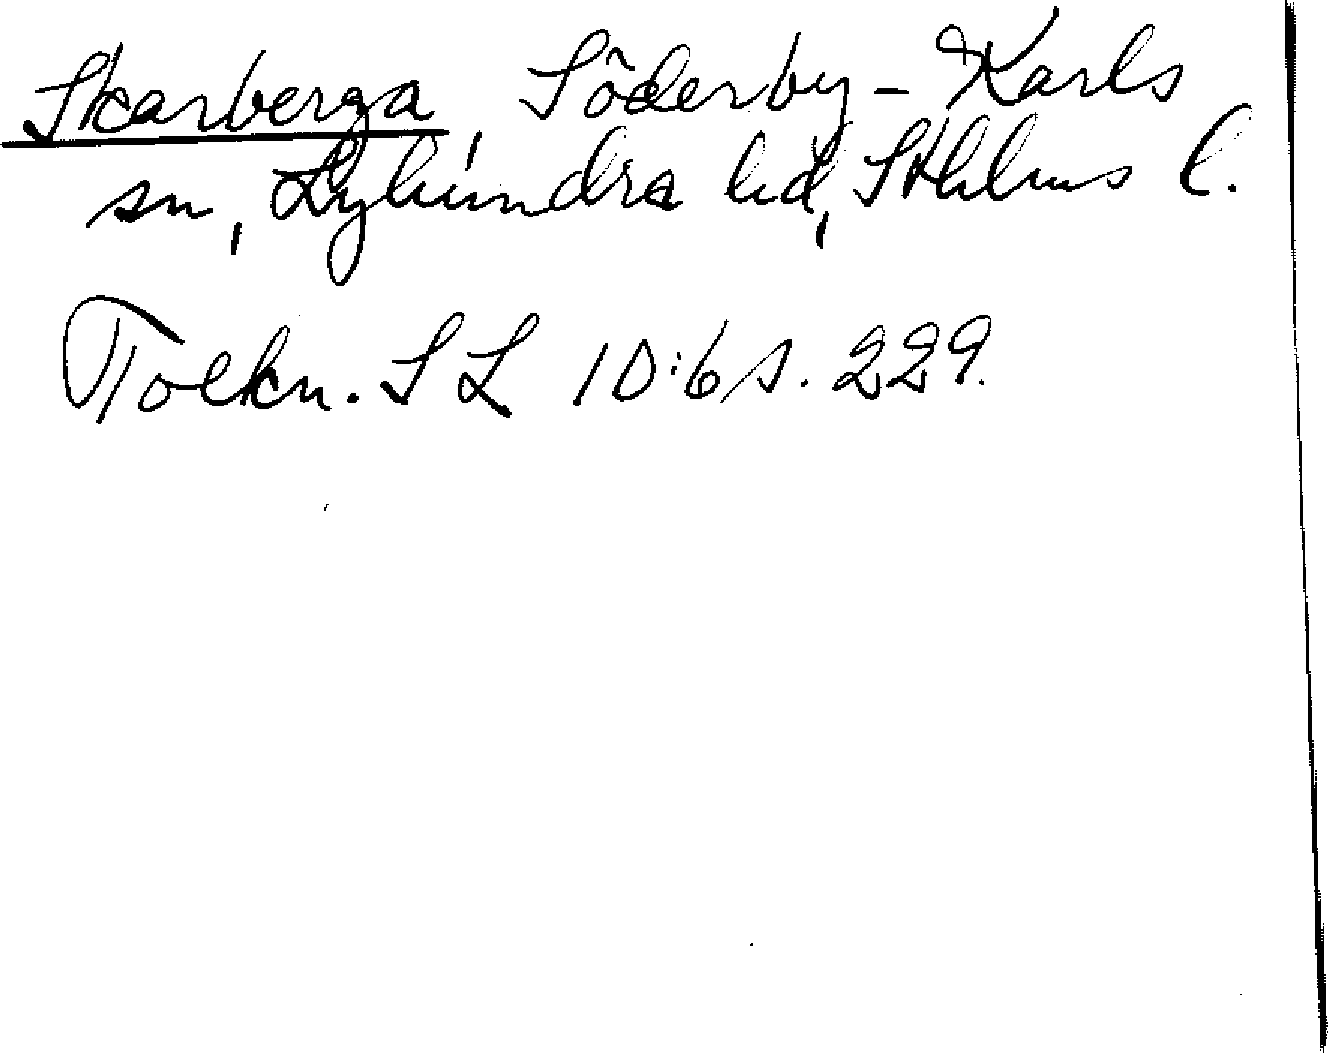 Skarberga, Söderby-Karls
sn, Lyhundra hd, Sthlms l.
Tolkn. SL 10:6 s. 229.